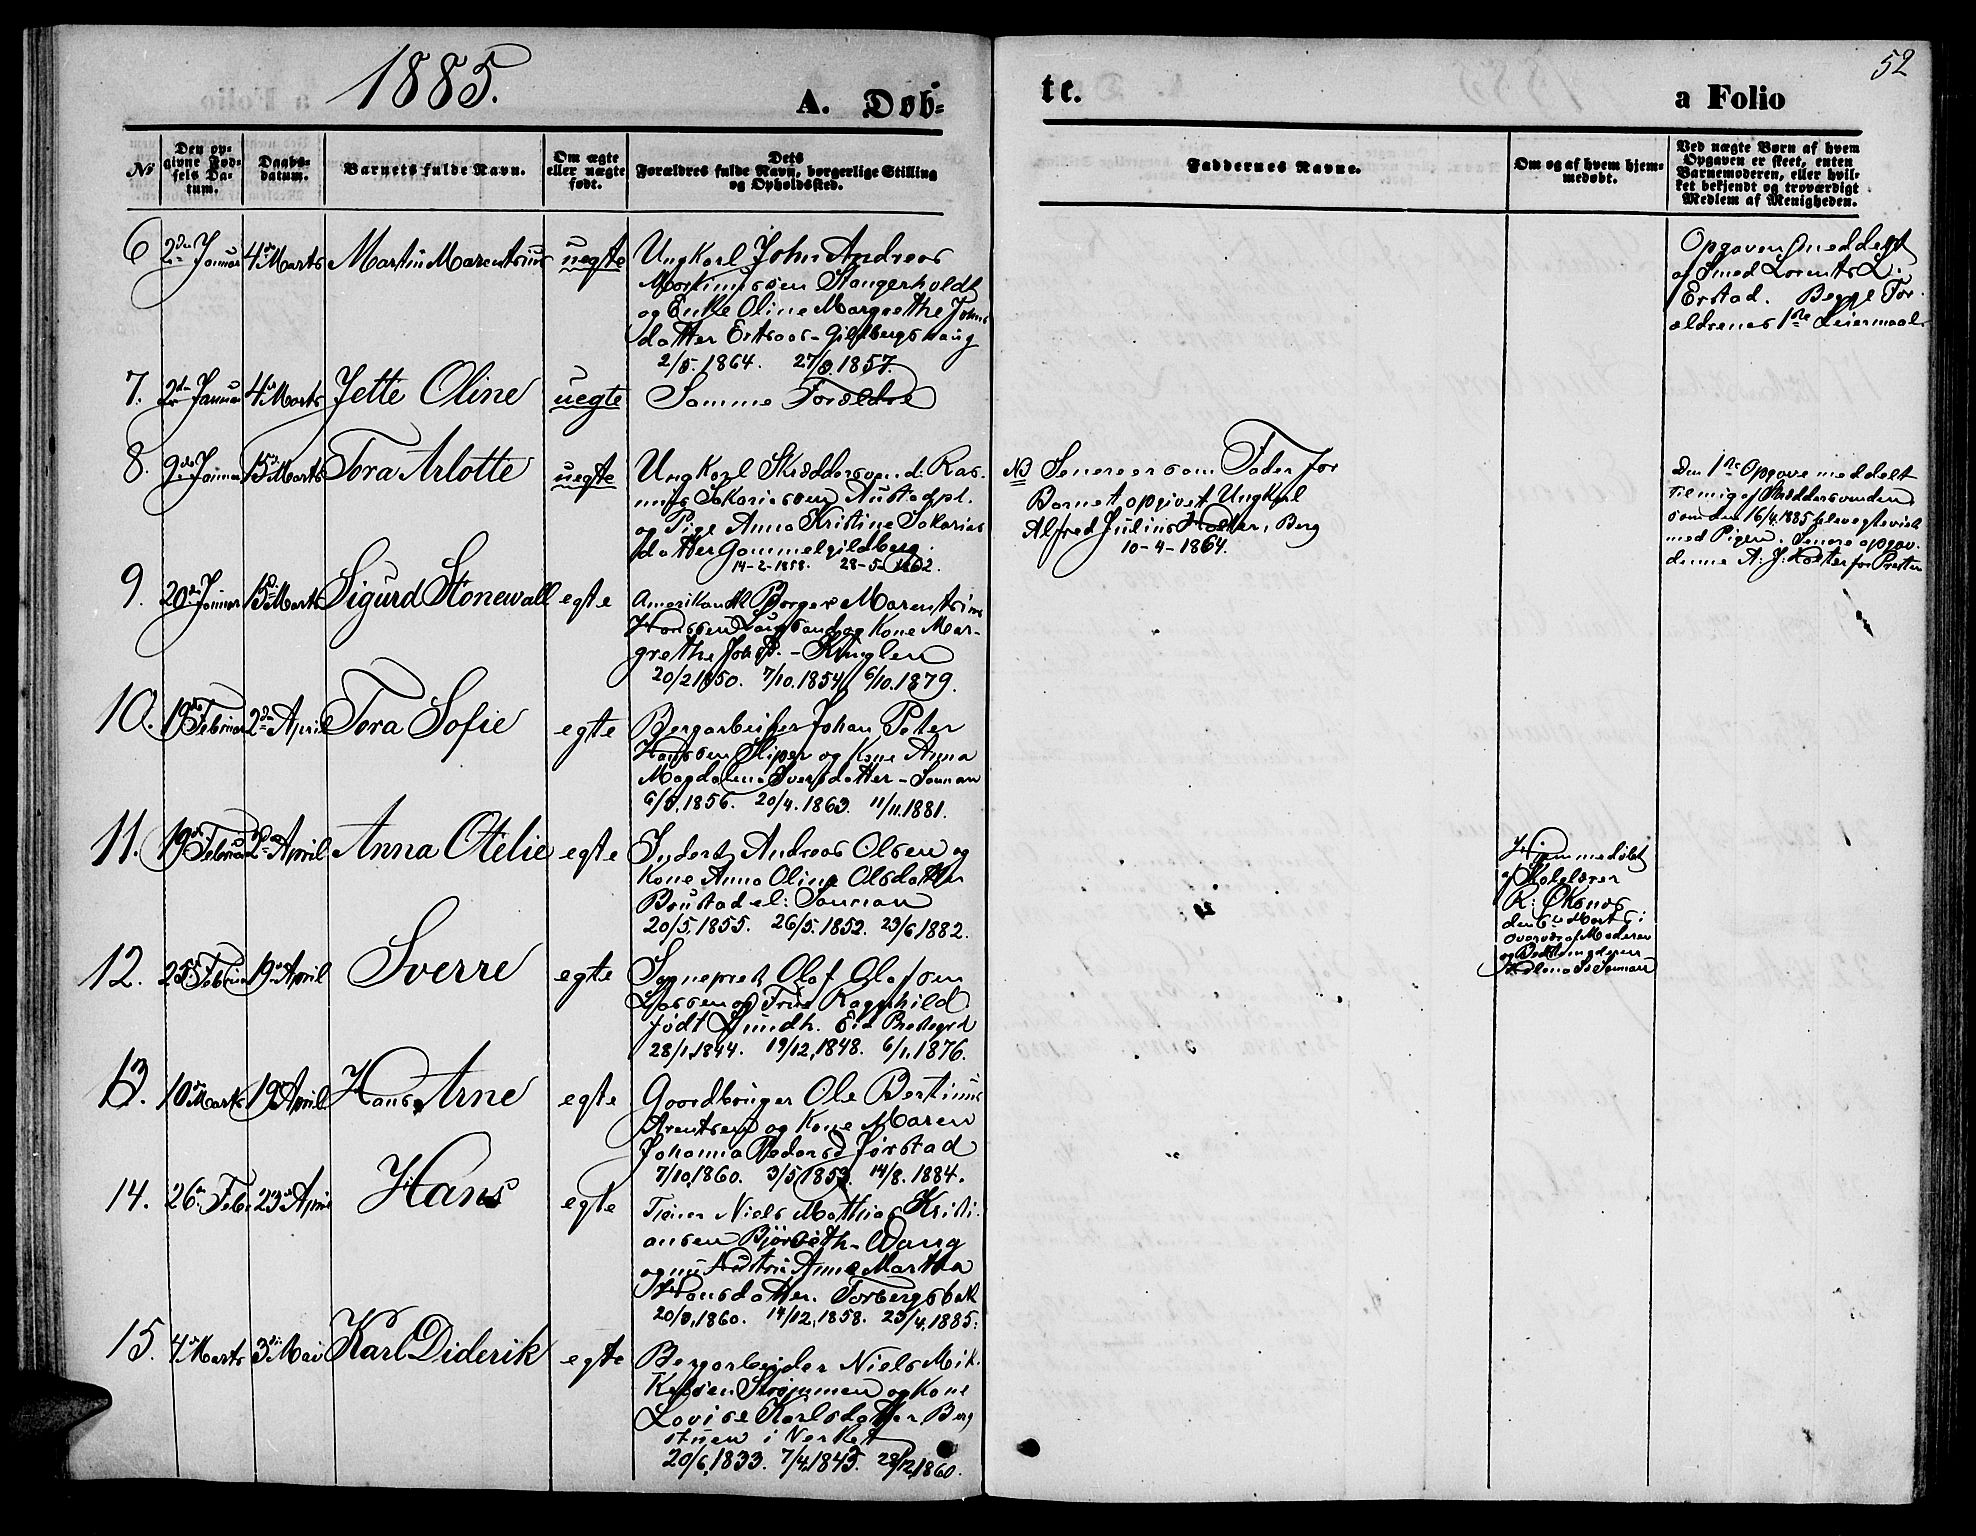 1885.
A. Døb-
te.
a Folio
52
No
Den op-
givne Fød-
sels Da-
tum.
Daabs-
datum.
Barnets fulde Navn.
Om ægte
eller uægte
født.
Dets
Forældres fulde Navn, borgerlige Stilling
og Opholdssted.
Faddernes Navne.
Om og af hvem hjem-
medøbt.
Ved uægte Børn af hvem
Opgaven er skeet, enten
Barnemoderen, eller hvil-
ket bekjendt og troværdigt
Medlem af Menigheden.
6 2den Januar 4de Marts Martin Marentsius uegte Ungkarl John Andreas
Stangerholdt
og Enke Oline Margrethe Johns
datter
2/5. 1864. 27/8. 1857.
Opgaven meddelt
af Smed Lorents L.
Erstad. Begge For-
ældrenes 1ste Leiermaal
7. 2den Januar 4de Marts Jette Oline uegte Samme Forældre
8. 9de Januar 15de Marts Tora Arlotte uegte Ungkarl Skræddersvend Ras-
mus Sakariassen
og Pige Anna Kristine Sakarias
datter Gammelgildberg.
14-2-1858. 28-5-1862.
NB Senere er som Fader for
Barnet opgivet Ungkarl
Alfred Julius Holter, Berg
10-4-1864.
Den 1ste Opgave meddelt
til mig af Skræddersvenden
som den 16/4 1885 blev egteviet
med Pigen. Senere opgav
denne A. J. Holter for Præsten
9. 20de Januar 15de Marts Sigurd Stonewall egte Amerikansk Borger Marentsius
Hanssen Langsand og Kone Mar-
grethe Johsd. - Kinglen
20/2 1850. 7/10. 1854, 6/10. 1879.
10. 19de Februar 2den April Tora Sofie egte Bergarbeider Johan Peter
Hanssen Sliper og Kone Anna
Magdalena Sversdatter - Sannan
6/5, 1856. 20/4. 1863. 11/11. 1881.
11. 19de Februar 2den April Anna Otelie egte Inderst Andreas Olsen og
Kone Anna Oline Olsdatter
Brustad el: Sannan
20/5, 1855. 26/5. 1852. 23/6 1882.
Hjemmedøbt
af Skolelærer
R: Oksnes
den 6te Marts i
overvær af Moderen
og
Helena Sannan
12. 25de Februar 19de April Sverre egte Sogneprest Olaf Olafsen
Lassen og Frue Ragnhild
født Lundh. Eid Prestegrd
28/1, 1844. 19/12, 1848. 6/1, 1876.
13. 10de Marts 19de April Hans Arne egte Gaardbruger Ole Bertinus
Arentsen og Kone Maren
Johanna Pedersd Jørstad
7/10, 1860. 3/5, 1853. 14/8. 1884.
14. 26de Feb. 23de April Hans egte Tjener Niels Mathias Kristi-
ansen Bjørseth - Vang
og nu Hustru Anne Martha
Hansdatter. Forbergsbak
20/8, 1860. 14/12, 1858. 23/4, 1885.
15. 4de Marts 3die Mai Karl Diderik egte Bergarbeider Niels Mik-
kelsen Strømmen og Kone
Lovise Karlsdatter Berg
stuen i Verket
20/6, 1833. 7/4, 1843. 28/12, 1860.